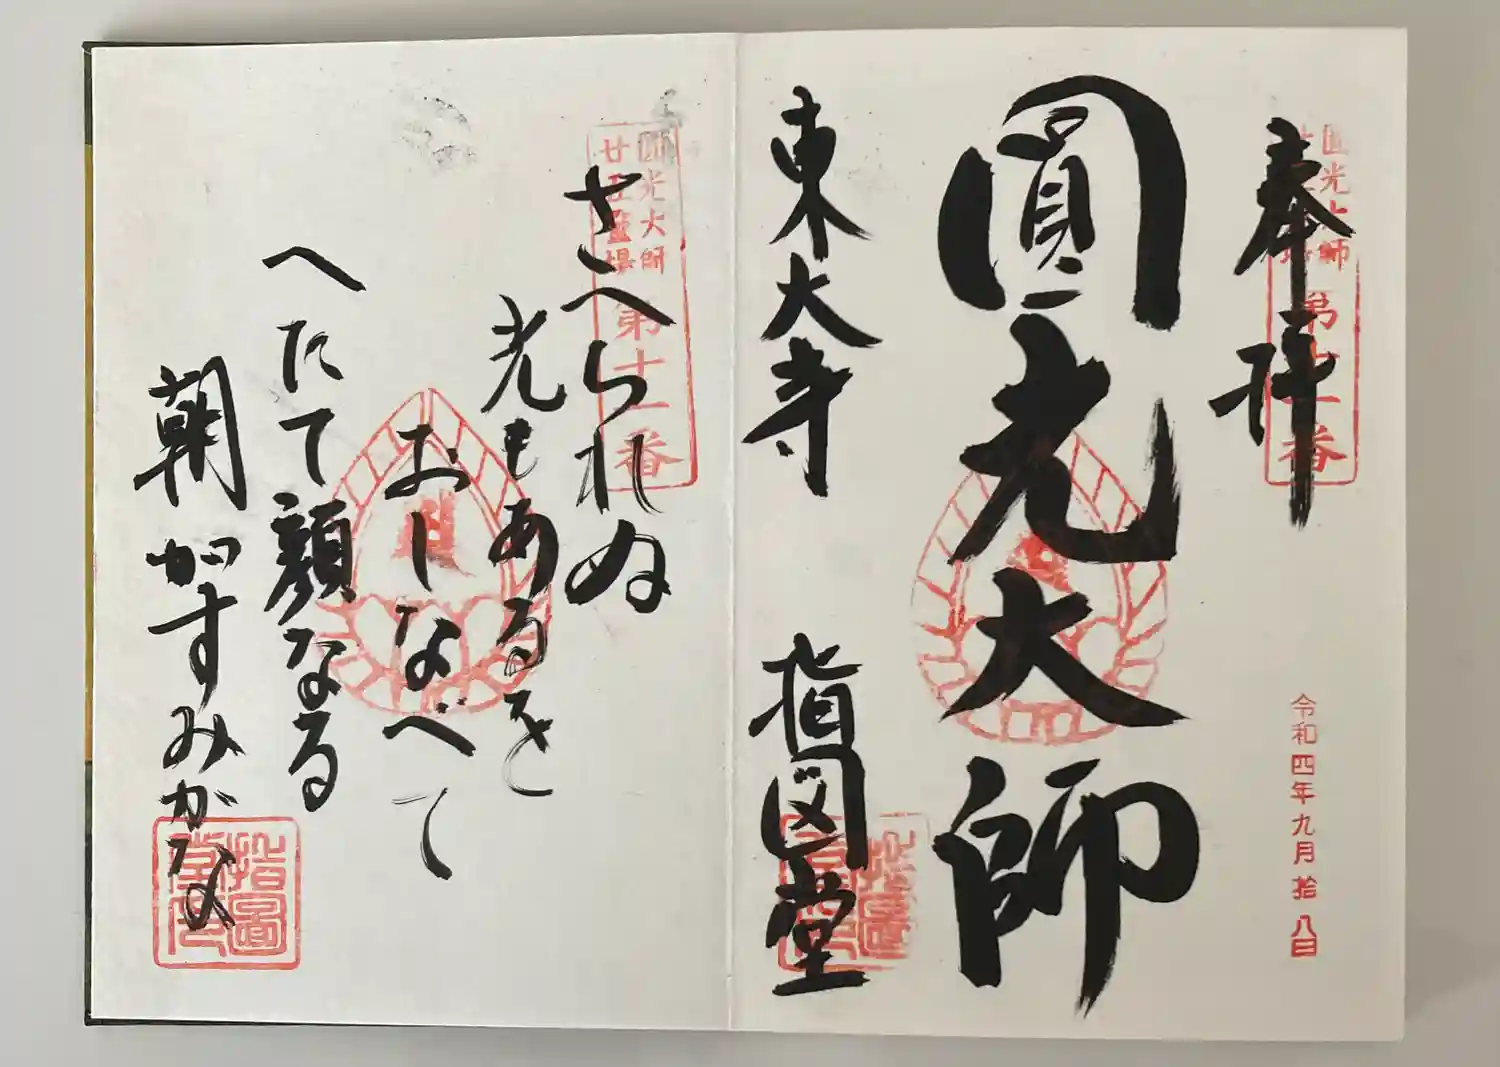 奉拝
圓光大師
廿五霊場
第十一番
令和四年九月拾八日
圓光大師
東大寺
指図堂
圓光大師
廿五霊場
第十一番
さへられぬ
光もあるを
おしなべて
へだて顔なる
朝がすみかな
指圖
堂印